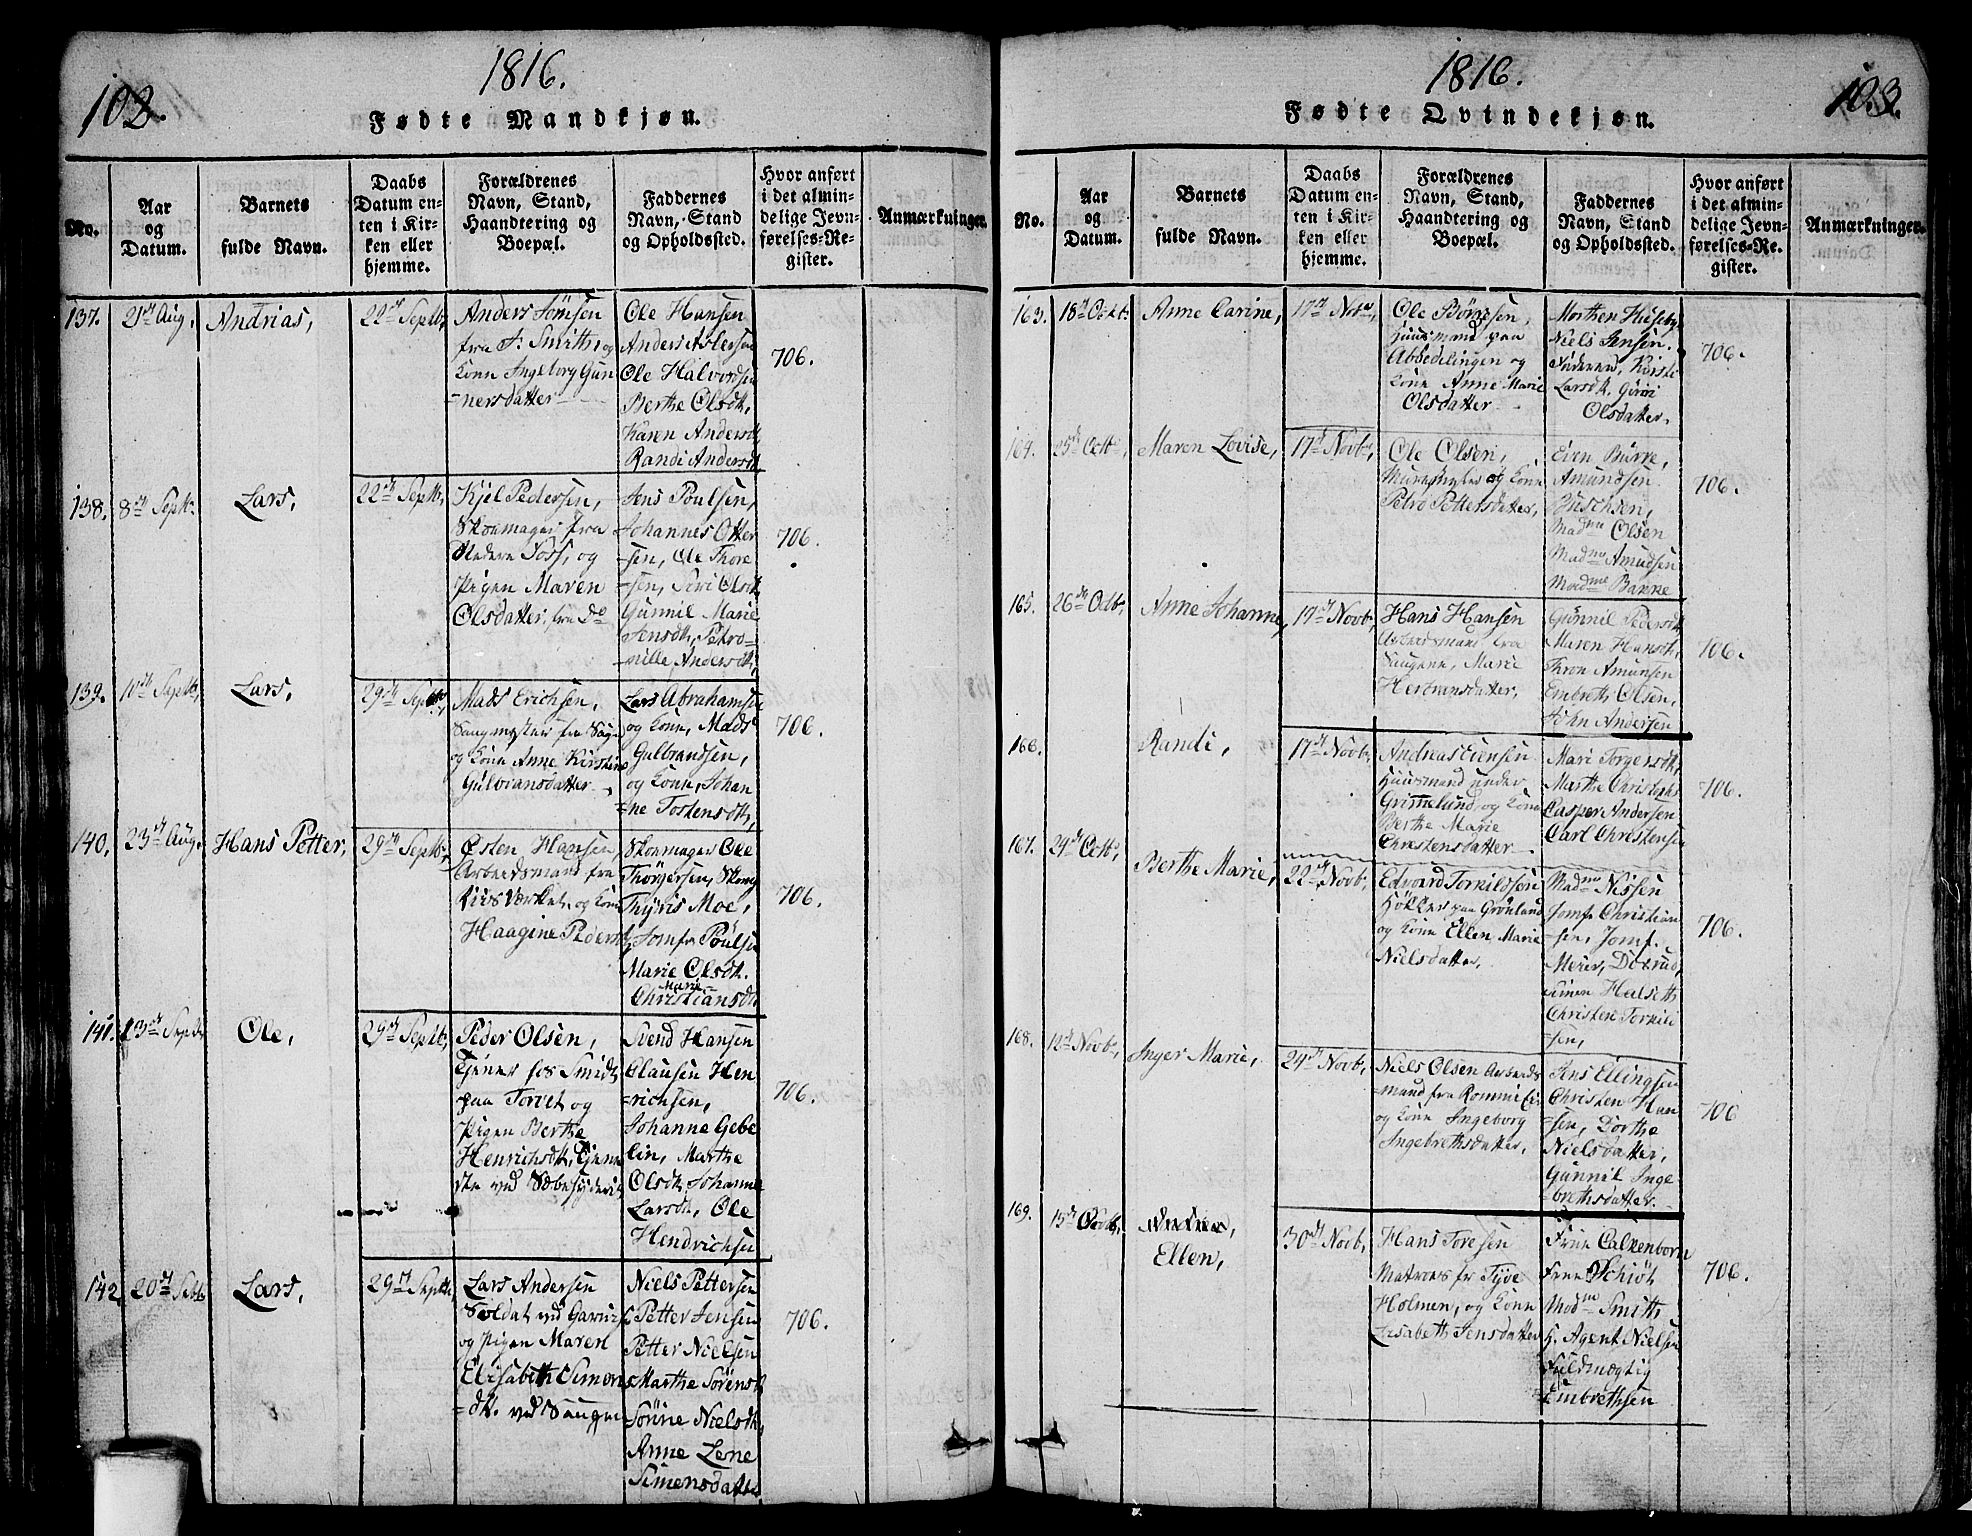 102.
1816.
Fødte Mandkjøn.
No.
Aar
og
Datum.
Barnets
fulde Navn.
Daabs
Datum en-
ten i Kir-
ken eller
hjemme.
Forældrenes
Navn, Stand,
Haandtering og
Boepæl.
Faddernes
Navn, Stand
og Opholdssted.
Hvor anført
i det almin-
delige Jevn-
førelses-Re-
gister.
Anmærkninger.
137.
21de Aug.
Andrias,
22de Septb,
Anders
fra J. Smith, og
Kone Ingeborg Gun
=nersdatter
Ole Hansen
Anders
Ole Halvordsen
Berthe Olsdtr,
Karen Andersdtr
Randi Andersdtr
706.
138.
8de Septb.
Lars,
22de Septb,
Kjel Pedersen,
Skoemager fra
og
Pigen Maren
Olsdatter, fra do
Jens Poulsen,
Johannes Otter
=sen, Ole Thore
=sen, Siri Olsdtr
Gunnil Marie
Jensdtr, Petro=
=nille Andersdtr,
706.
139.
10de Septb,
Lars,
29de Septb,
Mads Erichsen,
Saugmester fra Saugn
og Kone Anne Kirstine
Gulbransdatter
Lars Abrahamsen
og Kone, Mads
Gulbrandsen,
og Kone, Johan
=ne Tostensdtr,
706.
140.
23de Aug.
Hans Petter,
29de Septb,
Østen Hansen,
Arbeidsmand fra
og Kone
Haagine Pedersdtr
Skoemager Ole
Thorgersen,
Moe,
Jomfr Poulsen
Marie Olsdtr.
Marie
Christiansdtr
706.
141.
13de Septb
Ole,
29de Septb,
Peder Olsen,
Tjener hos Smidt
paa Torvet og
Pigen Berthe
Henrichsdtr, Tjene
ste ved
Svend Hansen
Clausen Hen
=richsen,
Johanne Gebe
lin, Marthe
Olsdtr, Johanne
Larsdtr, Ole
Hendrichsen
706.
142.
20de Septb
Lars,
29de Septb,
Lars Andersen
Soldat ved Garnis
og Pigen Maren
Elisabeth Simons
=dtr. ved Saugen
Niels Pettersen
Petter Jensen
Petter Nielsen
Marthe Sörensdtr
Nielsdtr,
Anne Lene
Simensdatter
706.
1816.
103.
Fødte Qvindekjøn.
No.
Aar
og
Datum.
Barnets
fulde Navn.
Daabs
Datum en-
ten i Kir-
ken eller
hjemme.
Forældrenes
Navn, Stand,
Haandtering og
Boepæl.
Faddernes
Navn, Stand
og Opholdssted.
Hvor anført
i det almin-
delige Jevn-
førelses-Re-
gister.
Anmærkninger.
163.
18de Octb.
Anne Carine,
17de Novb,
Ole
Huusmand paa
Abbedelingen og
Kone Anne Marie
Olsdatter
Morthen Huseby
Niels Jensen
Kirsti
Larsdtr, Guri
Olsdatter,
706.
164.
25de Octb,
Maren Lovise,
17de Novb,
Ole Olsen,
og Kone
Petro Pettersdatter,
Even Burre,
Amundsen
Madme Olsen
Madme Amudsen
Madme
706.
165.
26de Octb,
Anne Johanne,
17de Novb,
Hans Hansen
Arbeidsmand fra
Saugene, Marie
Gunnil Pedersdtr
Maren Hansdtr,
Thron Amunsen
Embreth Olsen,
John Andersen
706.
166.
Randi,
17de Novb,
Huusmand under
Grimelund og Kone
Berthe Marie
Christensdatter
Mari Torgersdtr,
Marthe Christophs
Casper Andersen
Carl Christensen
706.
167.
24de Octb,
Berthe Marie,
22de Novb,
Edvard Torkildsen
Høkker paa Grönland
og Kone Ellen Marie
Nielsdatter,
Madme Nissen
Jomfr Christian
=sen, Jomf.
Meier,
Simen Halseth
Christen Torkild
sen,
706.
168.
12de Novb,
Inger Marie,
24de Novb,
Niels Olsen Arbeids
=mand fra
og Kone Ingeborg
Ingebrethsdatter,
Jens Ellingsen
Christen Han
=sen, Dorthe
Nielsdatter,
Gunnil Inge
=brethsdatter.
706
169.
15de Octb,
Ellen,
30de Novb,
Hans Toresen
Matros fr Tyve
Holmen, og Kone
Lisabeth Jensdatter
Frue Calkenborn
Frue Schiøt,
Madme Smith,
H. Agent Nielsen
Fuldmægtig
Embrethsen
706.